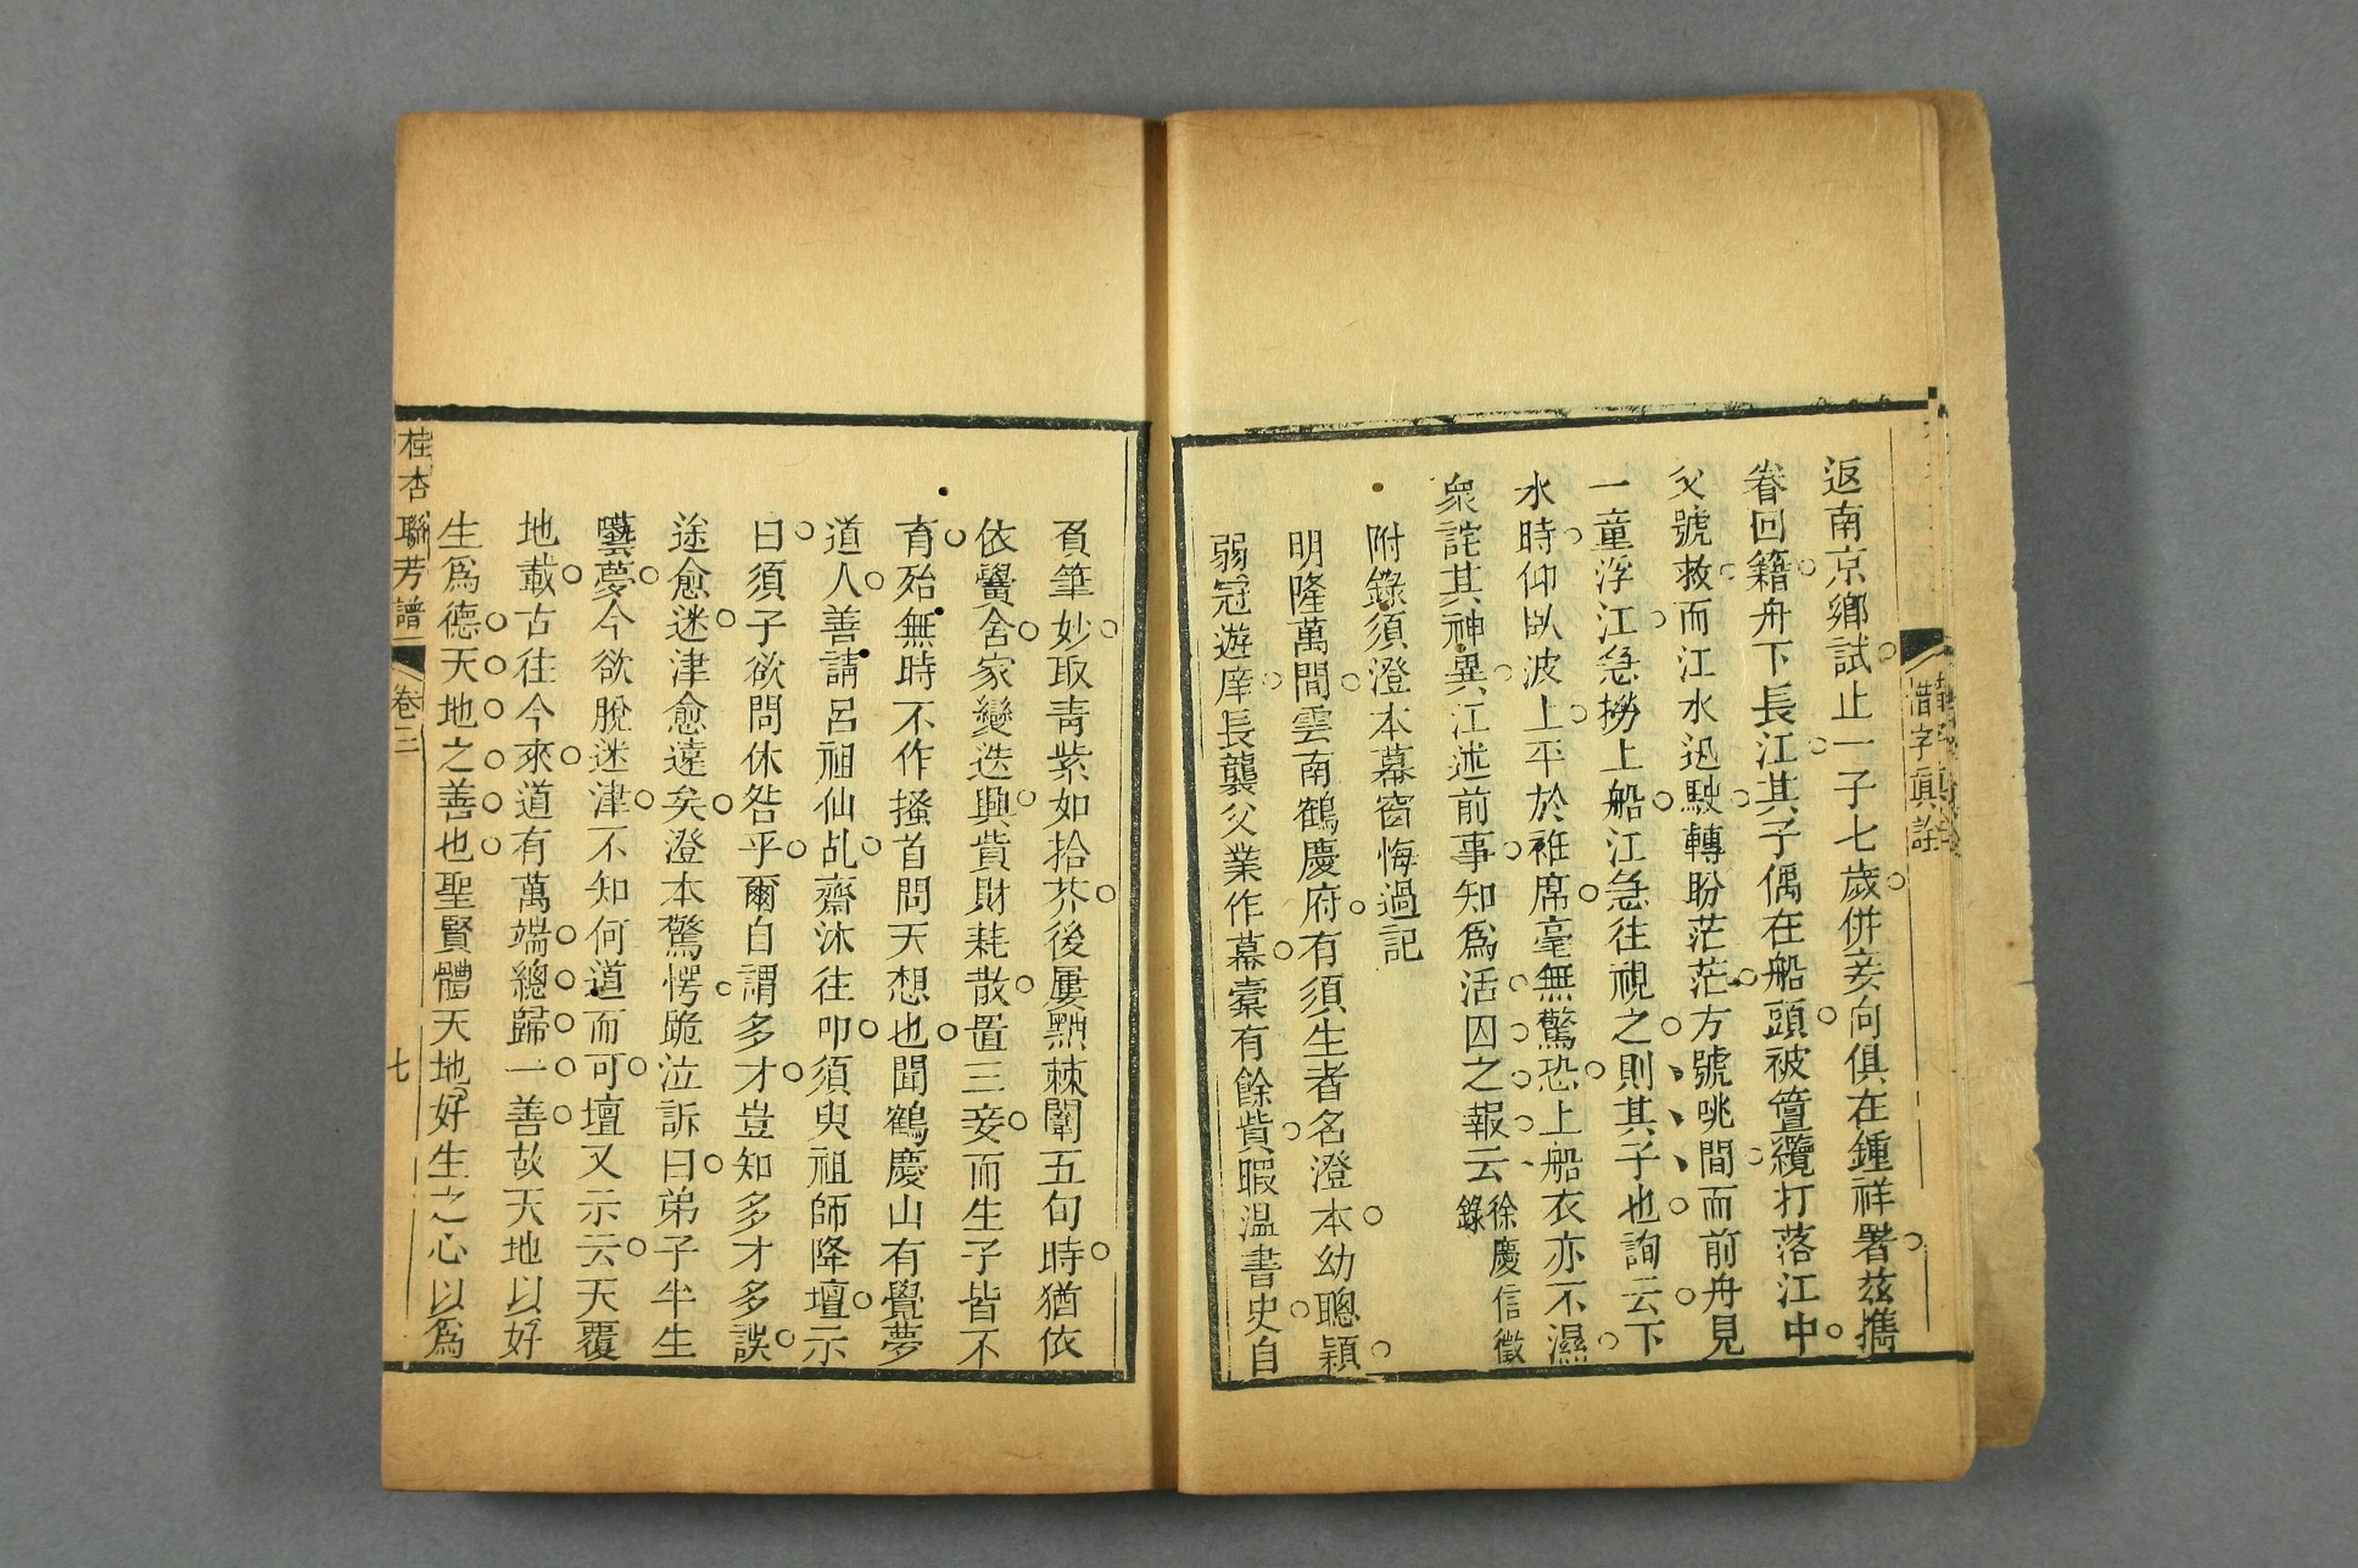 返南京鄉試止一子七歲併妾向俱在鍾祥署兹攜
眷回籍舟下長江其子偶在船頭被篙纜打落江中
父號救而江水迅駛轉盼茫茫方號咷間而前舟見
一童浮江急撈上船江急往視之則其子也詢云下
水時仰臥波上平於袵席毫無驚恐上船衣亦不濕
衆詫其神異江述前事知爲活囚之報云徐慶信徵
錄
附錄須澄本幕窗悔過記
明隆萬間雲南鶴慶府有須生者名澄本幼聰穎
弱冠遊庠長襲父業作幕橐有餘貲暇溫書史自
負筆妙取青紫如拾芥後屢黜棘闈五旬時猶依
依黌舍家變迭興貲財耗散置三妾而生子皆不
育殆無時不作搔首問天想也聞鶴慶山有覺夢
道人善請呂祖仙乩齋沐往叩須臾祖師降壇示
曰須子欲問休咎乎爾自謂多才豈知多才多誤
途愈迷津愈遠矣澄本驚愕跪泣訴曰弟子半生
囈夢今欲脫迷津不知何道而可壇又示云天覆
地載古往今來道有萬端總歸一善故天地以好
生爲德天地之善也聖賢體天地好生之心以爲
桂杏聯芳譜
卷三
七
惜字眞詮